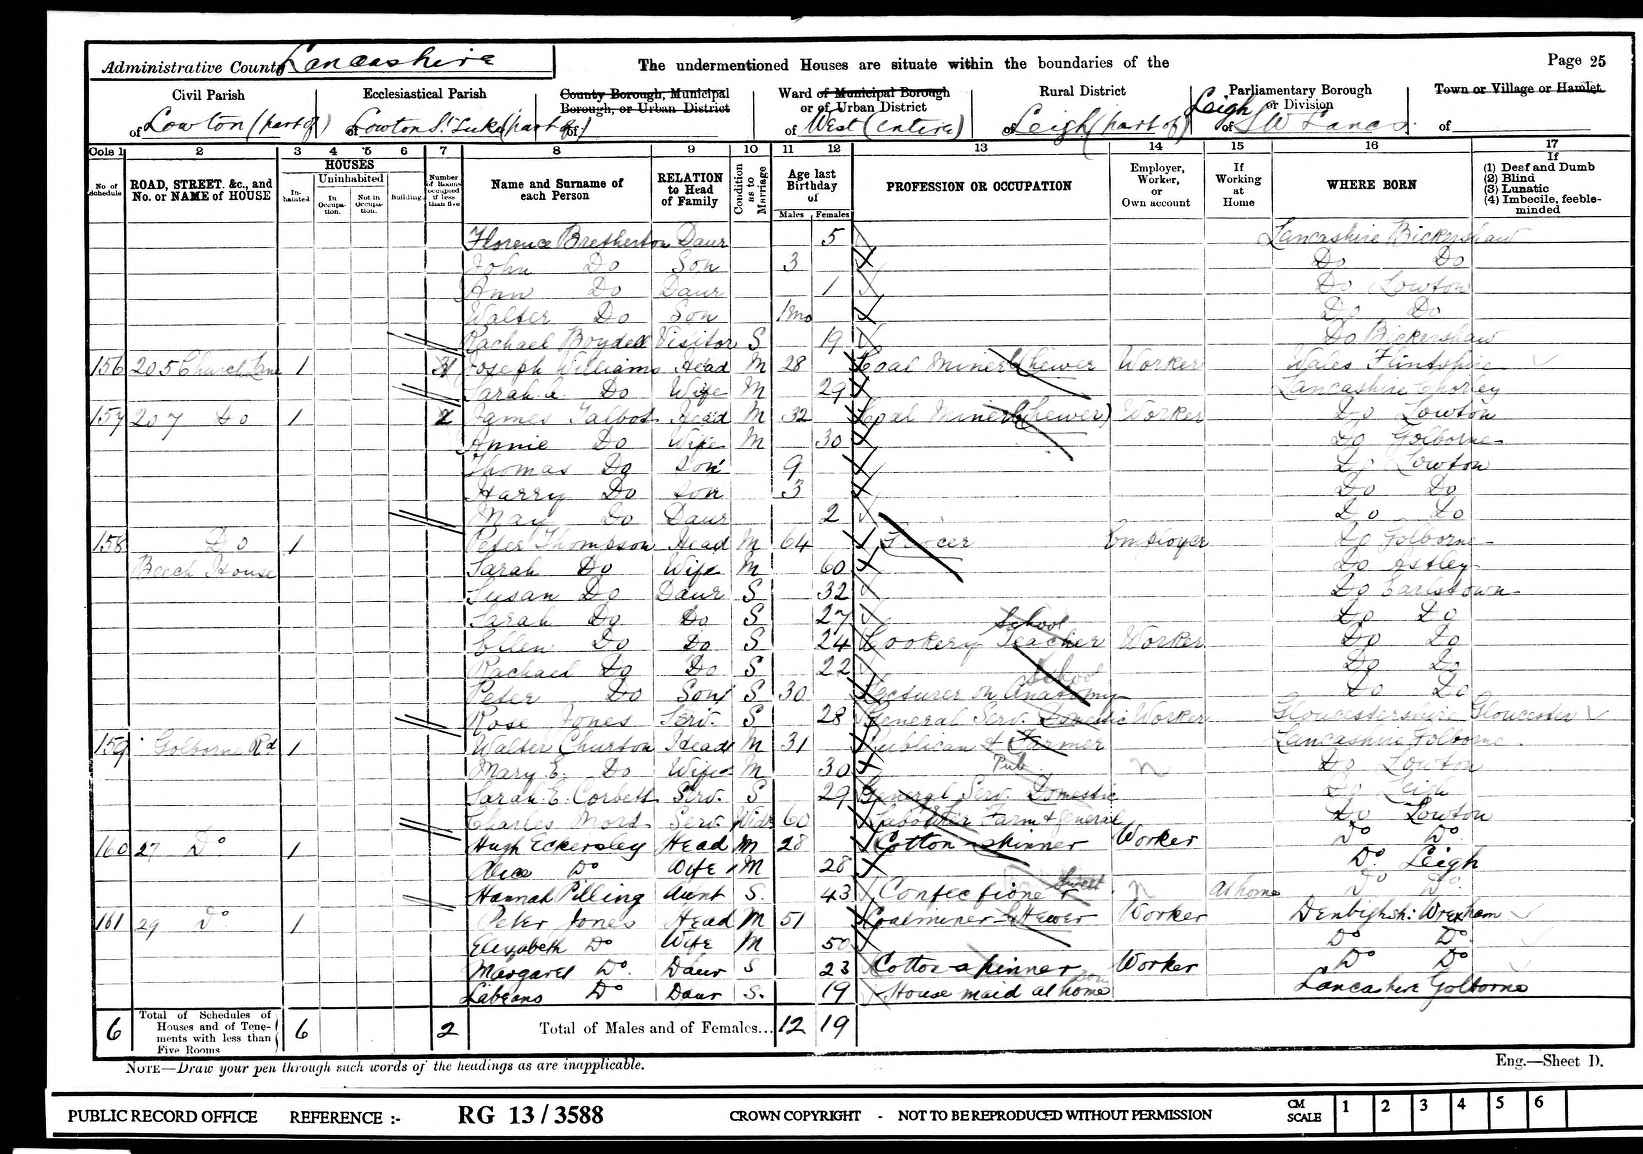 Administrative County Lancashire
The undermentioned Houses are situate within the boundaries of the
Page 25
Civil Parish
of Lowton (part of)
Ecclesiastical Parish
of Lowton St Luke (part of)
County Borough, Municipal
Borough, or Urban District
of
Ward of Municipal Borough
or of Urban District
of West (entire)
Rural District
of Leigh (part of)
Parliamentary Borough
or Division
Leigh
of S W Lancs.
Town or Village or Hamlet
of
Cols 1 2 3 4 5 6 7 8 9 10 11 12 13 14 15 16 17
No. of Schedule
ROAD, STREET, &c., and No. or NAME of HOUSE
HOUSES
Inhabited
Uninhabited
In Occupation.
Not in Occupation.
Building
Number of Rooms occupied if less than five
Name and Surname of each Person
RELATION to Head of Family
Condition as to Marriage
Age last Birthday of
Males Females
PROFESSION OR OCCUPATION
Employer, Worker, or Own account
If Working at Home
WHERE BORN
If
(1) Deaf and Dumb
(2) Blind
(3) Lunatic
(4) Imbecile, feeble-minded
Florence Bretherton Daur 5 Lancashire Bickershaw
John Do Son 3 Do Do
Ann Do Daur 1 Do Lowton
Walter Do Son 1mo Do Do
Rachael Boydell Visitor S 19 Do Bickershaw
156 205 Church Lane 1 Joseph Williams Head M 28 Coal Miner (hewer Worker Wales Flintshire
Sarah A. Do Wife M 29 Lancashire Chorley
157 207 Do 1 2 James Talbot Head M 32 Coal Miner (hewer) Worker Do Lowton
Annie Do Wife M 30 Do Golborne
Thomas Do Son 9 Do Lowton
Harry Do Son 3 Do Do
May Do Daur 2 Do Do
158 Do 1 Peter Thompson Head M 64 Grocer Employer Do Golborne
Beech House Sarah Do Wife M 60 Do Astley
Susan Do Daur S 32 Do Earlstown
Sarah Do Do S 27 Do Do
Ellen Do Do S 24 Cookery School Teacher Worker Do Do
Rachael Do Do S 22 Do Do
Peter Do Son S 30 Lecturer on Anatomy School Do Do
Rose Jones Serv. S 28 General Serv. Domestic Worker Gloucestershire Gloucester
159 Golborne Rd 1 Walter Churton Head M 31 Publican & Farmer Lancashire Golborne
Mary E. Do Wife M 30 Pub. Do Lowton
Sarah E. Corbett Serv. S 29 General Serv. Domestic Do Leigh
Charles Mort Serv. Widr 60 Labourer Farm & General Do Lowton
160 27 Do 1 Hugh Eckersley Head M 28 Cotton spinner Worker Do Do
Alice Do Wife M 28 Do Leigh
Hannah Pilling Aunt S. 43 Confectioner Sweet At home Do Do
161 29 Do 1 Peter Jones Head M 51 Coalminer Hewer Worker Denbighsh: Wrexham
Elizabeth Do Wife M 50 Do Do
Margaret Do Daur S 23 Cotton spinner Worker Do Do
Do Daur S. 19 House maid at home Lancashire Golborne
6 Total of Schedules of Houses and of Tenements with less than Five Rooms 6 2 Total of Males and of Females... 12 19
NOTE—Draw your pen through such words of the headings as are inapplicable.
Eng.—Sheet D.
PUBLIC RECORD OFFICE REFERENCE :- RG 13 / 3588 CROWN COPYRIGHT - NOT TO BE REPRODUCED WITHOUT PERMISSION CM SCALE 1 2 3 4 5 6